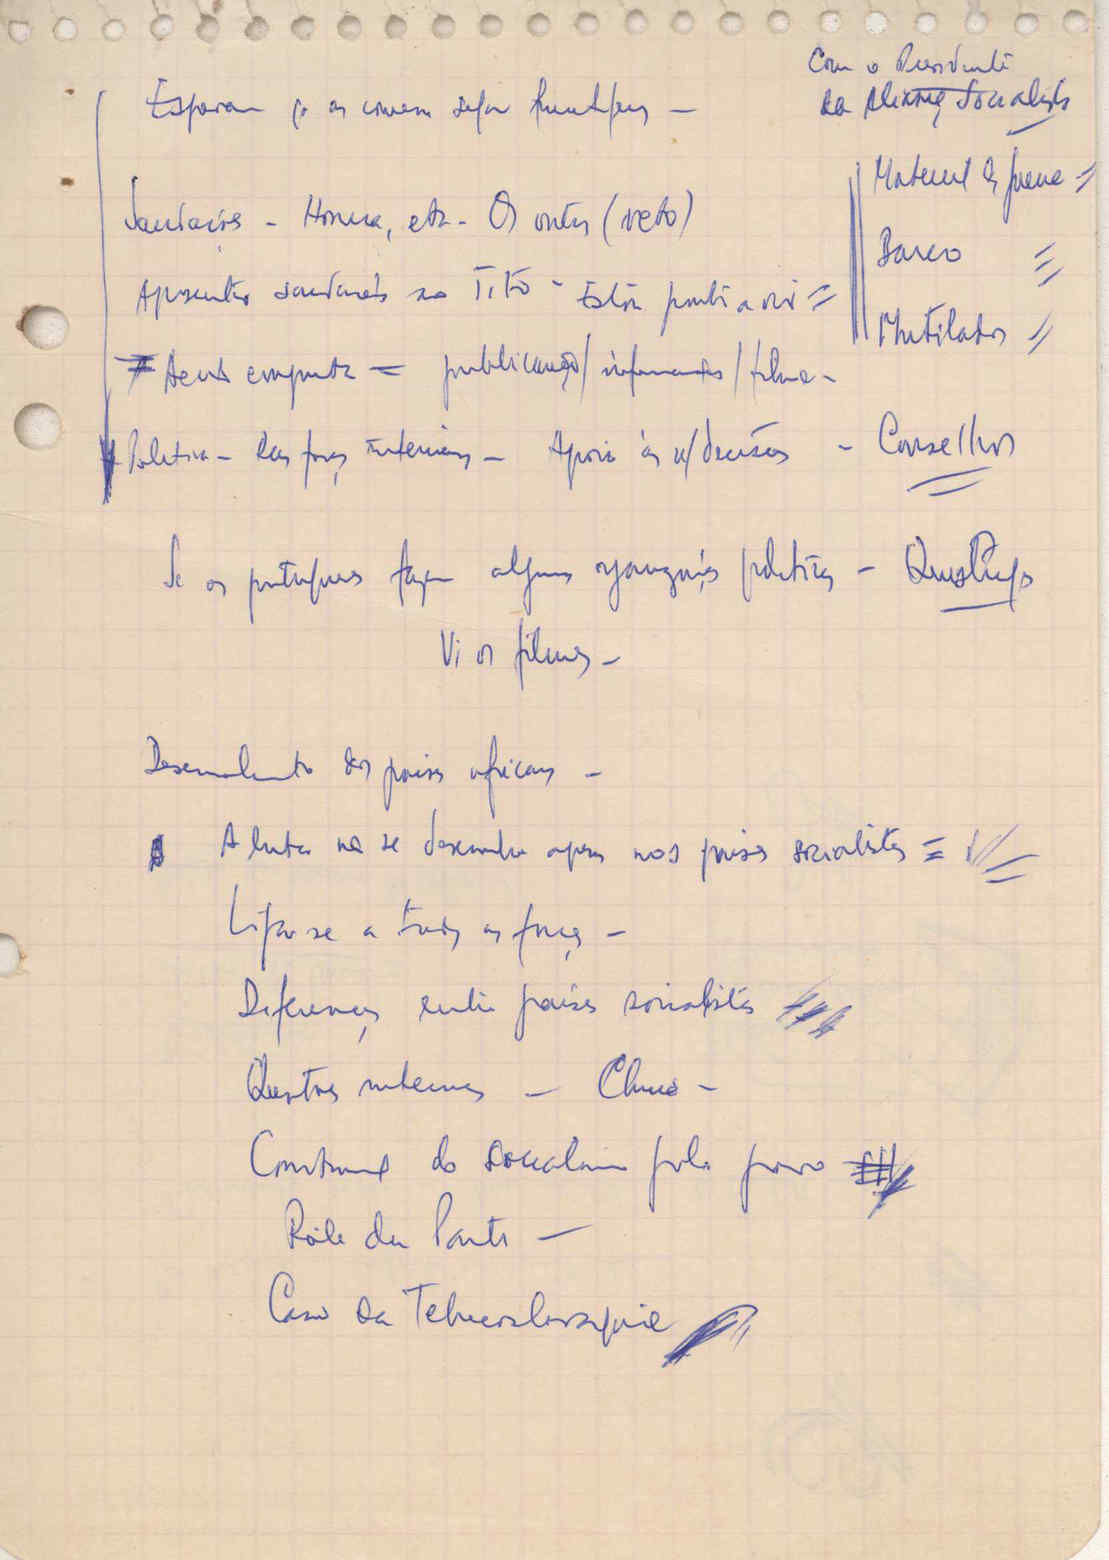 Com o Presidente
da Aliança Socialista
Esperam q as conversas sejam frutuosas -
Material de guerra =
Saudações - Honra, etc - Os outros (veto)
Barco =
Apresentar saudações ao Tito - Estão prontos a ouvir =
Mutilados =
publicações / informações / filme -
Política - Das forças interiores - Apoio às n/decisões - Conselhos
Se os portugueses fazem algumas organizações políticas -
Vi os filmes -
Desenvolvimento dos países africanos -
A luta não se desenvolve apenas nos países socialistas =
Ligar-se a todas as forças -
Diferenças entre países socialistas
Questões internas - Chine -
do socialismo pelo povo
Rôle du Parti -
Caso da Tchecoslovaquie